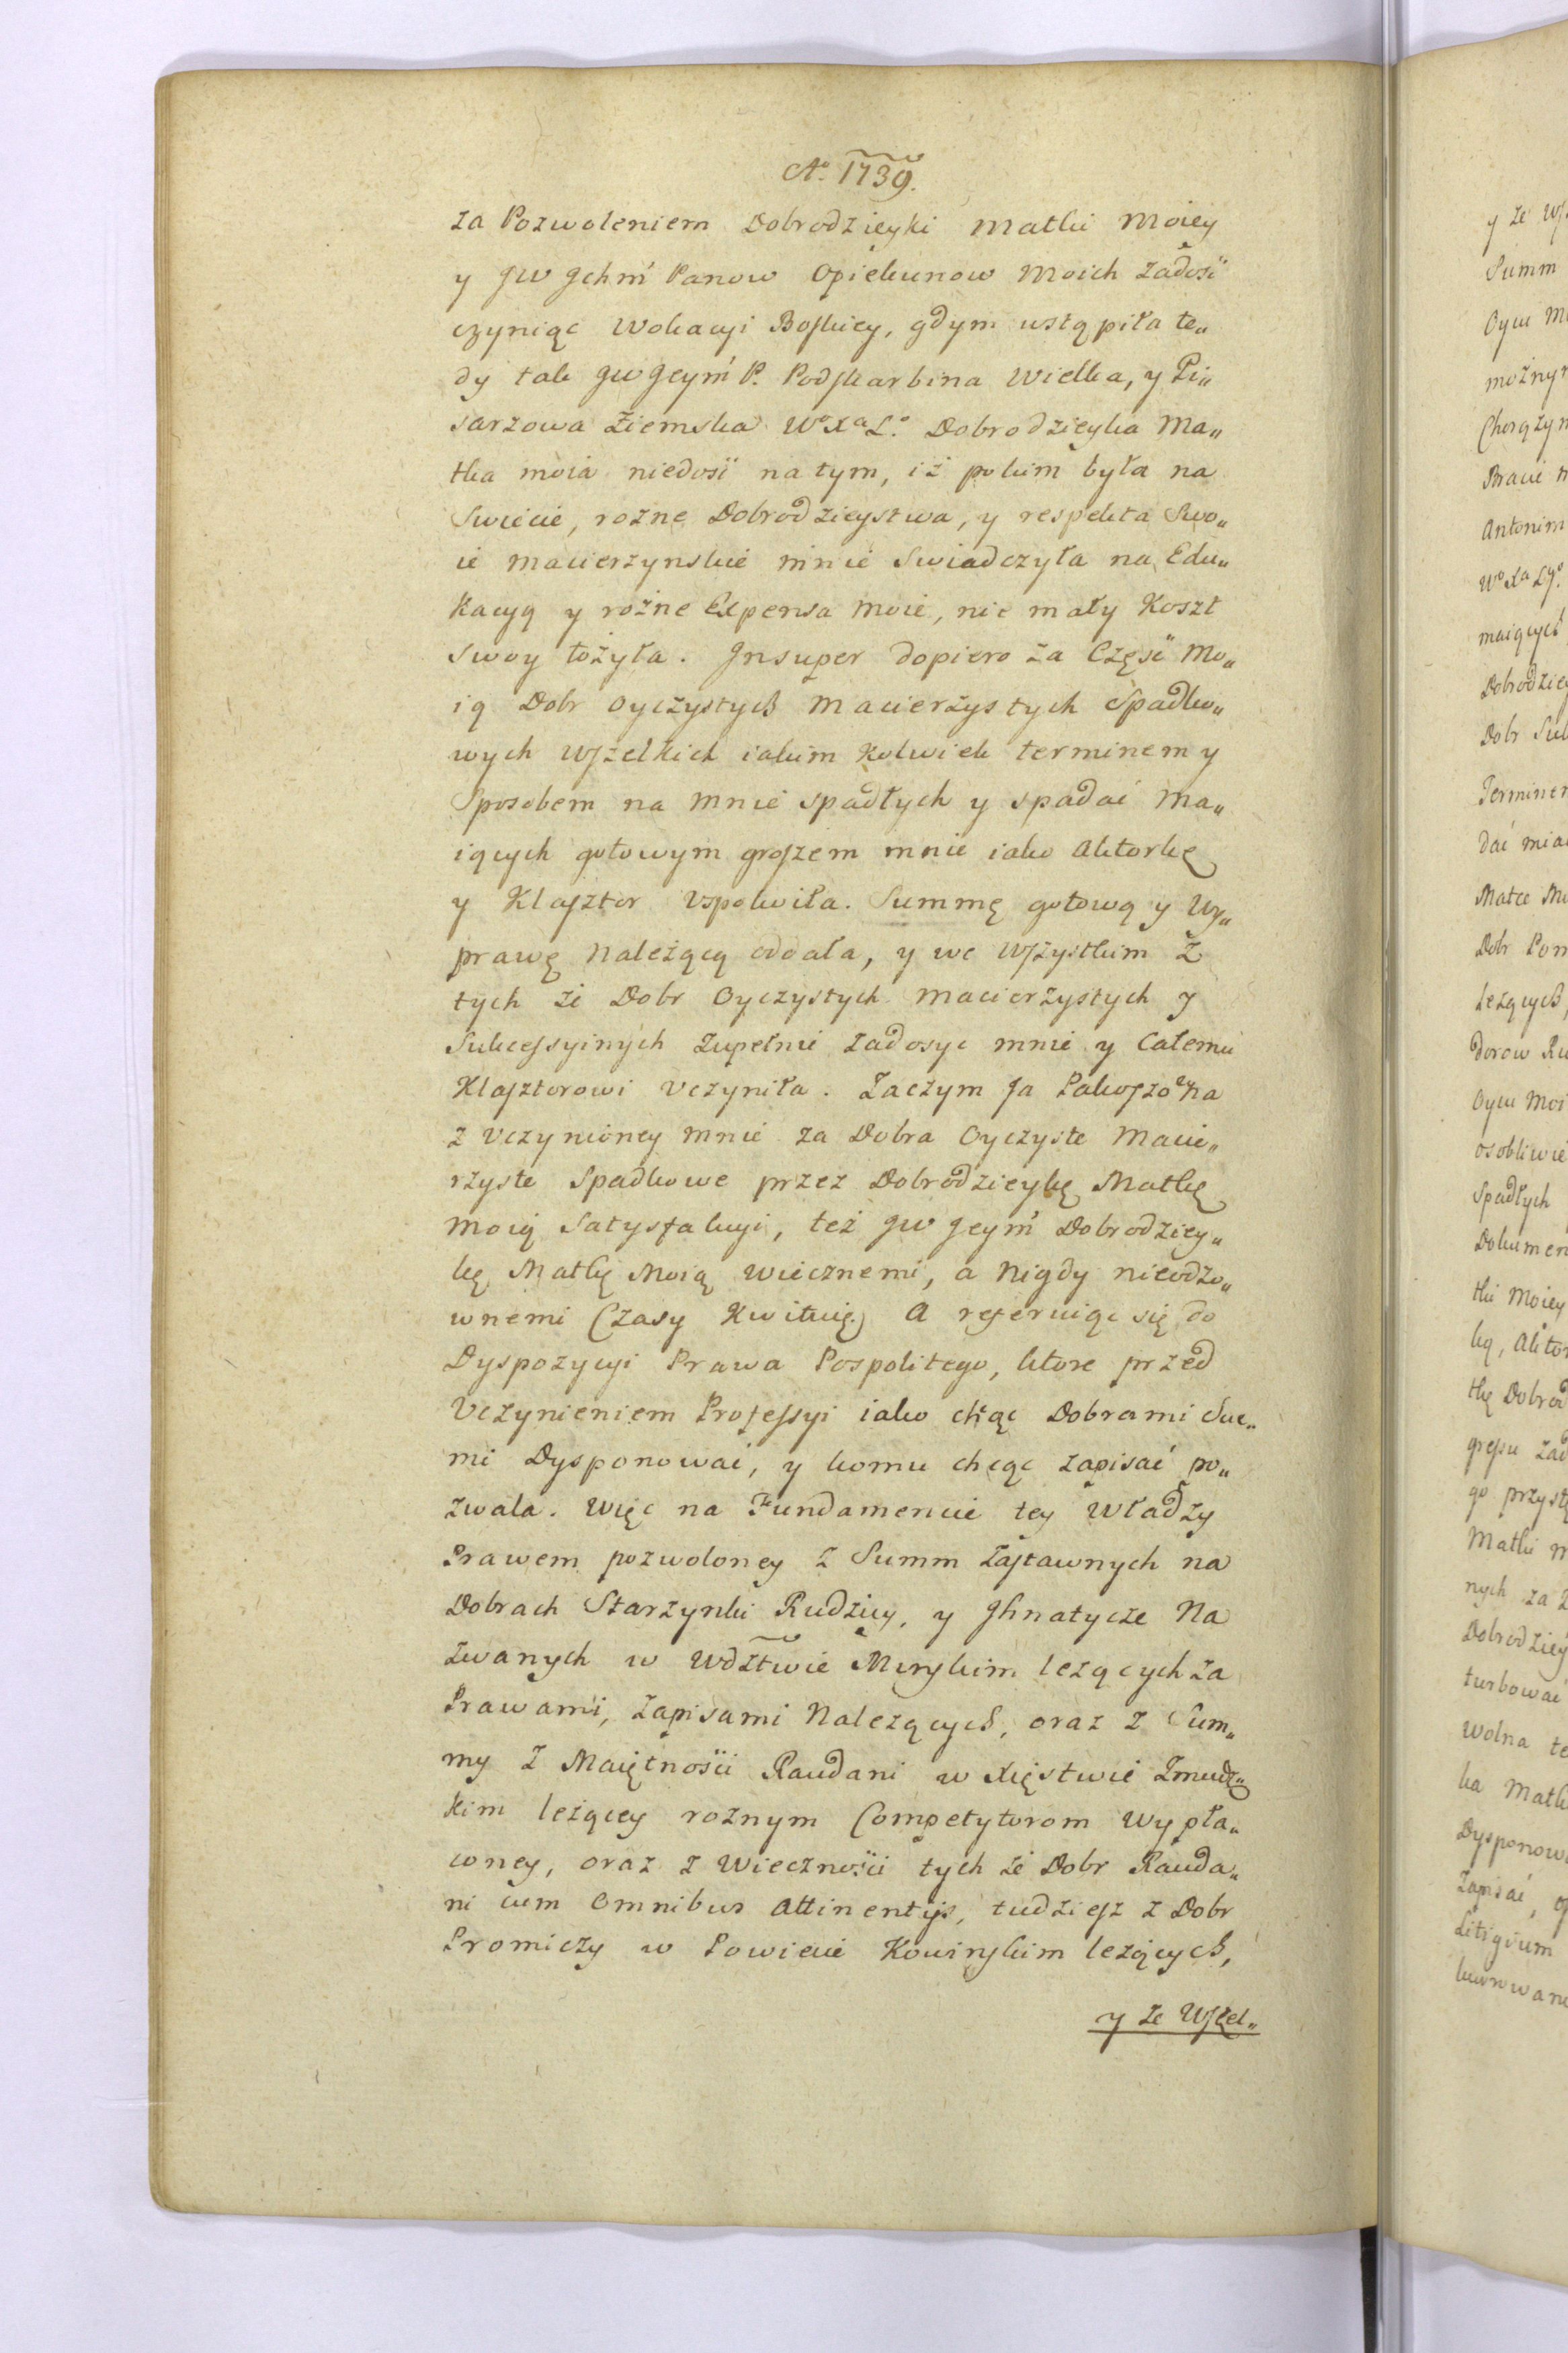 Aº. 1739.
za Pozwoleniem Dobrodzieyki Matki Moiey
y JW Jchm̃ Panow Opiekunow Moich zadość
czyniąc Wokacyi Boskiey, gdym ustąpiła te„
dy tak JW Jeym̃ P. Podskarbina Wielka, y Pi„
sarzowa Ziemska Wº Xª Lº. Dobrodzieyka Ma„
tka moia niedość na tym, iż pokim była na
Swiecie, rożne Dobrodzieystwa, y respekta Swo„
ie macierzynskie mnie Swiadczyła na Edu„
kacyą y rożne Expensa moie, nie mały Koszt
Swoy łożyła. Jnsuper dopiero za Część Mo„
ią Dobr Oyczystych Macierzystych Spadko„
wych wszelkich iakim kolwiek terminem y
Sposobem na mnie spadłych y spadać Ma„
iących gotowym groszem mnie iako Aktorkę
y Klasztor Vspokoiła. Summę gotową y Wy„
prawę Należącą oddała, y we Wszystkim Z
tych że Dobr Oyczystych Macierzystych y
Sukcessyinych Zupełnie zadosyc mnie y Całemu
Klasztorowi Vczyniła. Zaczym Ja Pakoszowna
z Vczynioney mnie za Dobra Oyczyste Macie„
rzyste Spadkowe przez Dobrodzieykę Matkę
moią Satysfakcyi, też JW Jeym̃ Dobrodziey„
kę Matkę Moią wiecznemi, a Nigdy nieodzo„
wnemi Czasy Kwituię. A referuiąc się do
Dyspozycyi Prawa Pospolitego, ktore przed
Vczynieniem Professyi iako chcąc Dobrami Swe„
mi Dysponować, y komu chcąc zapisać po„
zwala. Więc na Fundamencie tey Władzy
Prawem pozwoloney z Summ Zastawnych na
Dobrach Starzynki Rudzicy, y Jhnatycze Na
zwanych w Wdztwie Minskim leżących za
Prawami, Zapisami Należących, oraz z Sum„
my z Maiętności Raudani w Xięstwie Zmudz„
kim leżącey rożnym Competytorom Wypła„
coney, oraz z Wieczności tych że Dobr Rauda„
ni cum Omnibus Attinentijs, tudziesz z Dobr
Promiczy w Powiecie Kowinskim leżących,
y ze Wszel„
y ze Ws
Summ
Oycu M
możnyn
Chorążyn
Braci m
Antonim
Wº Xª Lgº.
maiących
Dobrodziey
Dobr Suk
Terminem
dać mia
Matce Mo
Dobr Pom
leżących,
dorow Ru
Oycu Moi
osobliwie
Spadłych
Dokumen
tki Moiey
ką, Aktor
tkę Dobrod
gressu zad
go przystę
Matki m
nych za Z
Dobrodziey
turbować
Wolna te
ka Matk
Dysponowa
Zapisać,
Litigium